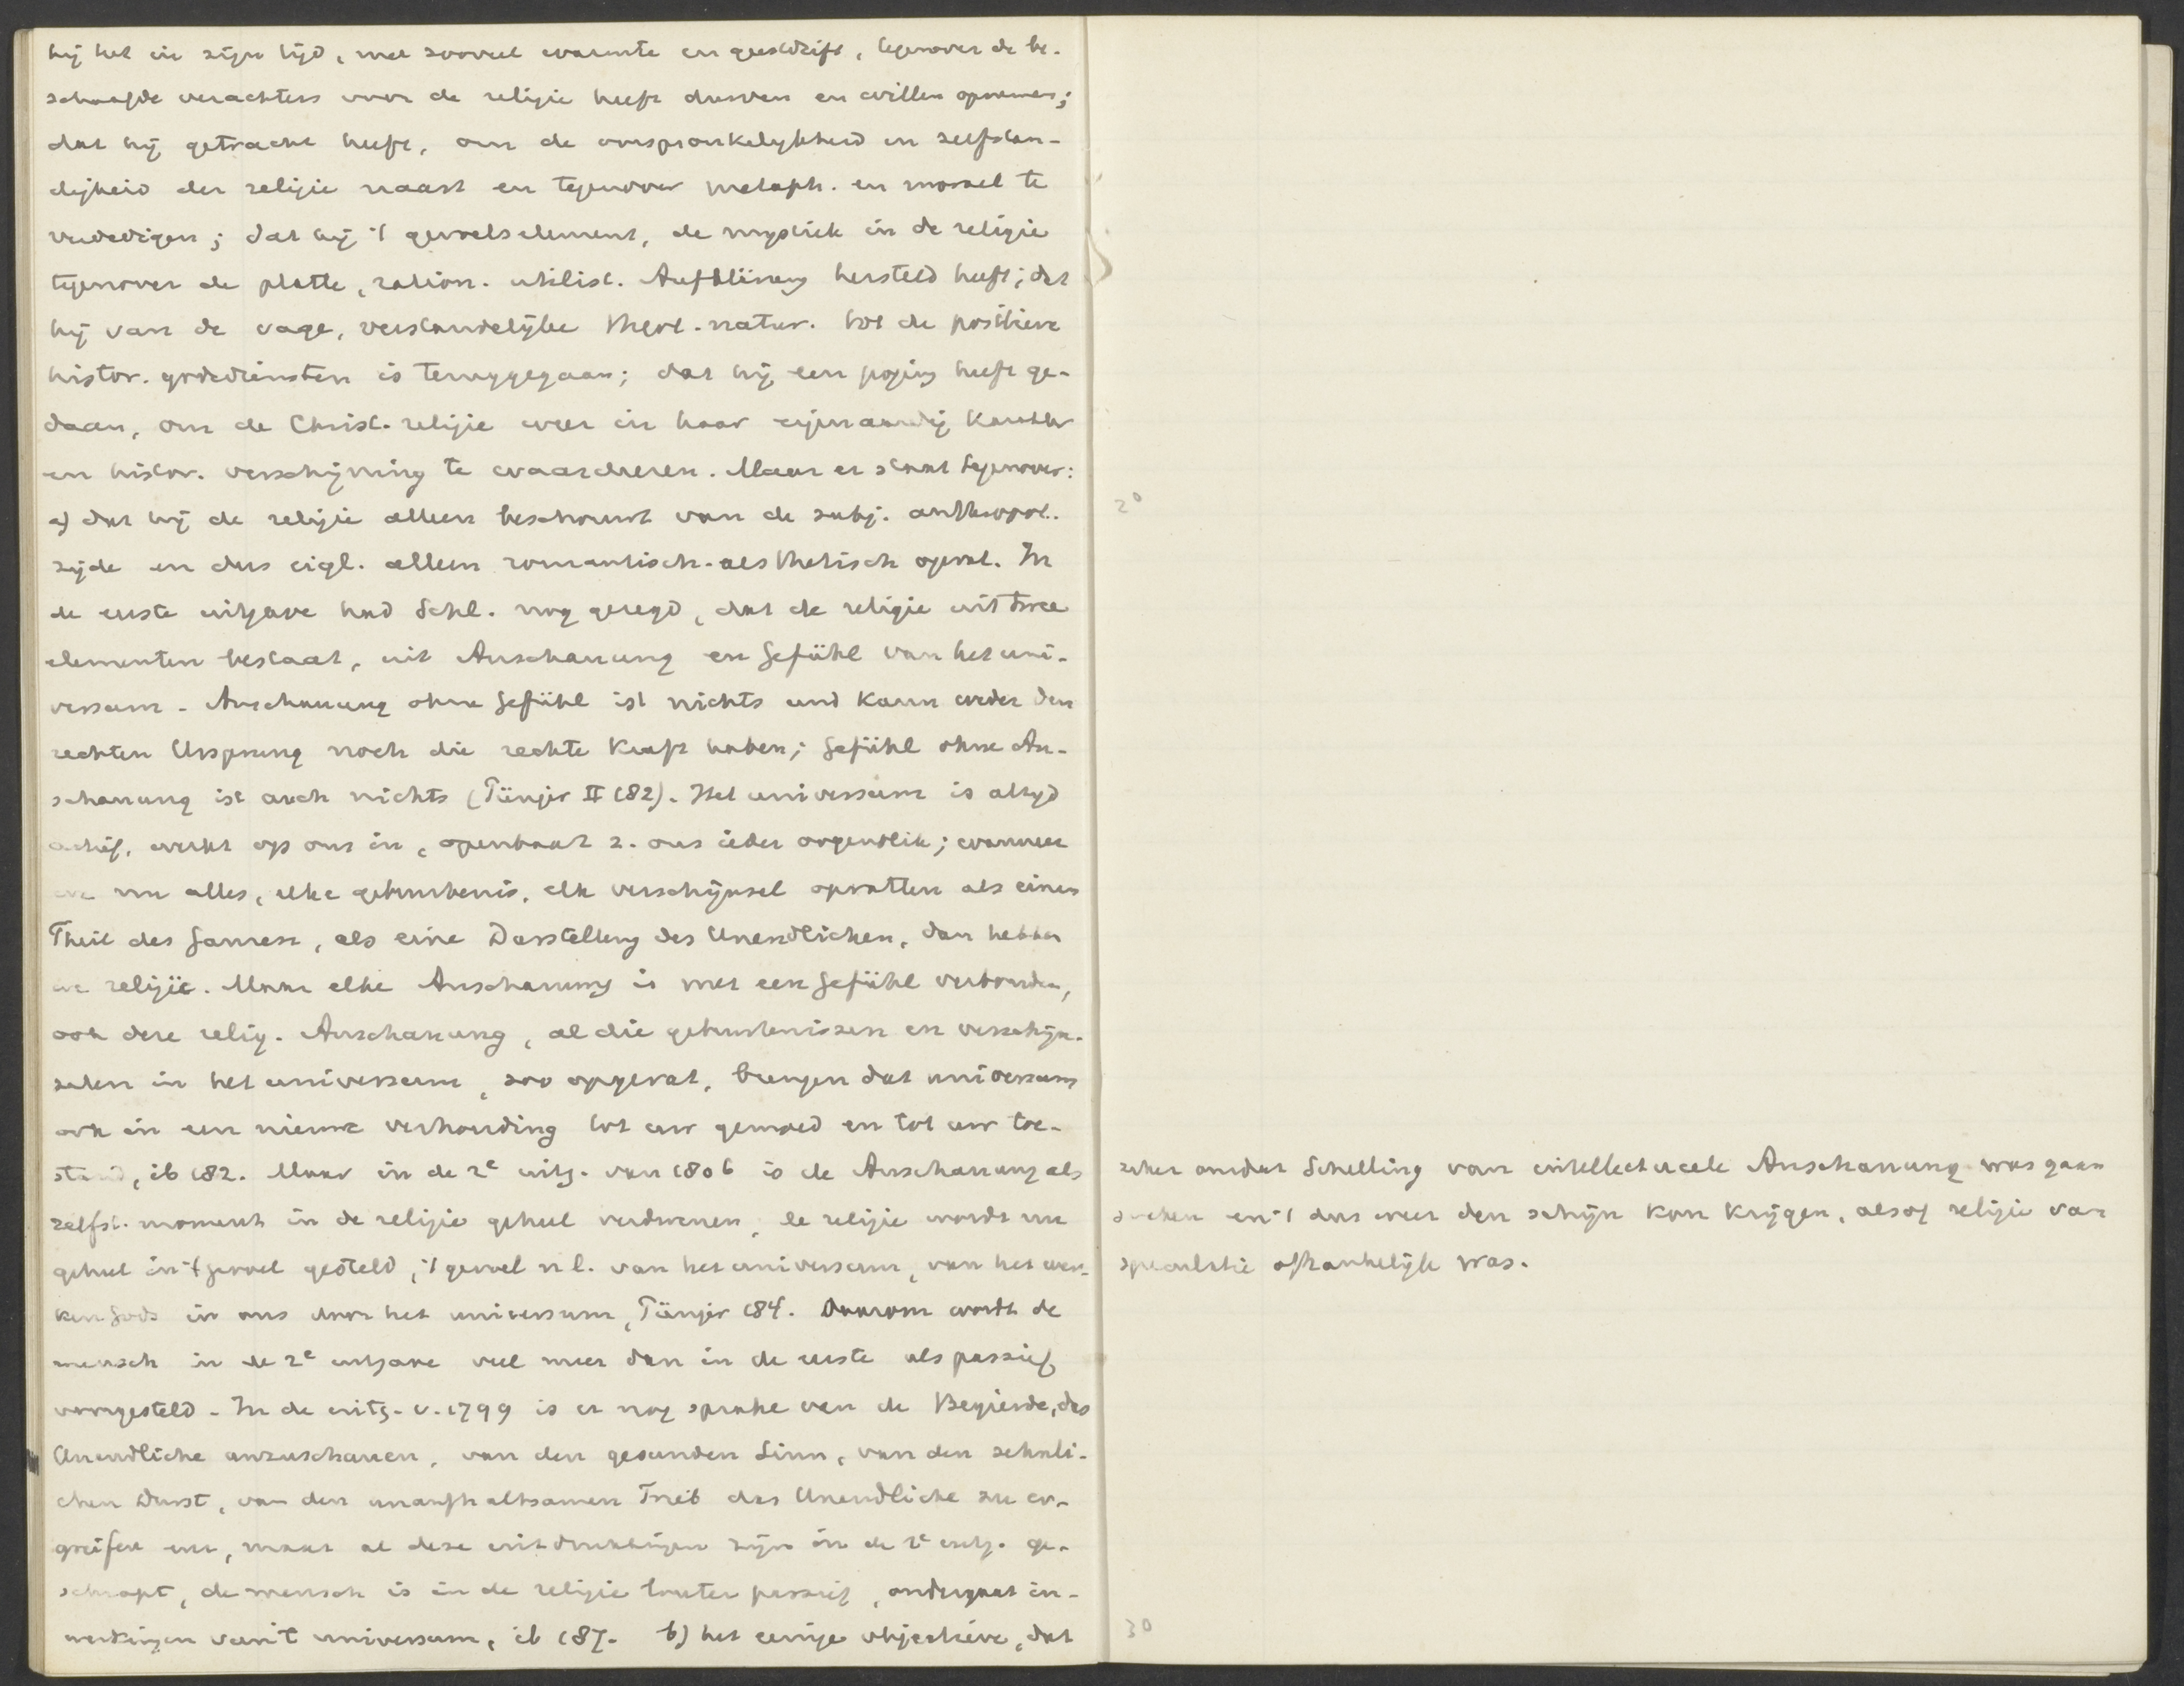 hij het in zijn tijd, met zooveel warmte en geestdrift, tegenover de be-
schaafde verachters voor de religie heeft durven en willen opnemen;
dat hij getracht heeft, om de oorspronkelijkheid en zelfstan-
digheid der religie naast en tegenover metaph. en moraal te
verdedigen; dat hij 't gevoelselement, de mystiek in de religie
tegenover de platte, ration. utilist. Aufklärung hersteld heeft; dat
hij van de vage, verstandelijke theol. natur. tot de positieve
histor. godsdiensten is teruggegaan; dat hij een poging heeft ge-
daan, om de Christ. religie weer in haar eigenaardig karakter
en histor. verschijning te waardeeren. Maar er staat tegenover:
a) dat hij de religie alleen beschouwt van de subj. anthropol.
zijde en dus eigl. alleen romantisch-aesthetisch opvat. In
de eerste uitgave had Schl. nog gezegd, dat de religie uit twee
elementen bestaat, uit Anschauung en Gefühl van het uni-
versum. Anschauung ohne Gefühl ist nichts und kann weder den
rechten Ursprung noch die rechte Kraft haben; Gefühl ohne An-
schauung ist auch nichts (Pünjer II 182). Het universum is altijd
actief, werkt op ons in, openbaart z. ons ieder oogenblik; wanneer
we nu alles, elke gebeurtenis, elk verschijnsel opvatten als einen
Theil des Ganzen, als eine Darstellung des Unendlichen, dan hebben
we religie. Maar elke Anschauung is met een Gefühl verbonden,
ook deze relig. Anschauung, al die gebeurtenissen en verschijn-
selen in het universum, zoo opgevat, brengen dat universum
ook in een nieuwe verhouding tot uw gemoed en tot uw toe-
stand, ib 182. Maar in de 2e uitg. van 1806 is de Anschauung als
zelfst. moment in de religie geheel verdwenen, de religie wordt nu
geheel in 't gevoel gesteld, 't gevoel nl. van het universum, van het wer-
ken Gods in ons door het universum, Pünjer 184. Daarom wordt de
mensch in de 2e uitgave veel meer dan in de eerste als passief
voorgesteld. In de uitg. v. 1799 is er nog sprake van de Begierde, das
Unendliche anzuschauen, van den gesunden Sinn, van den sehnli-
chen Durst, van den unaufhaltsamen Trieb das Unendliche zu er-
greifen enz, maar al deze uitdrukkingen zijn in de 2e uitg. ge-
schrapt, de mensch is in de religie louter passief, ondergaat in-
werkingen van 't universum, ib 187. b) het eenige objectieve, dat
20
zeker omdat Schelling van intellectueele Anschauung was gaan
spreken en 't dus weer den schijn kon krijgen, alsof religie van
speculatie afhankelijk was.
30